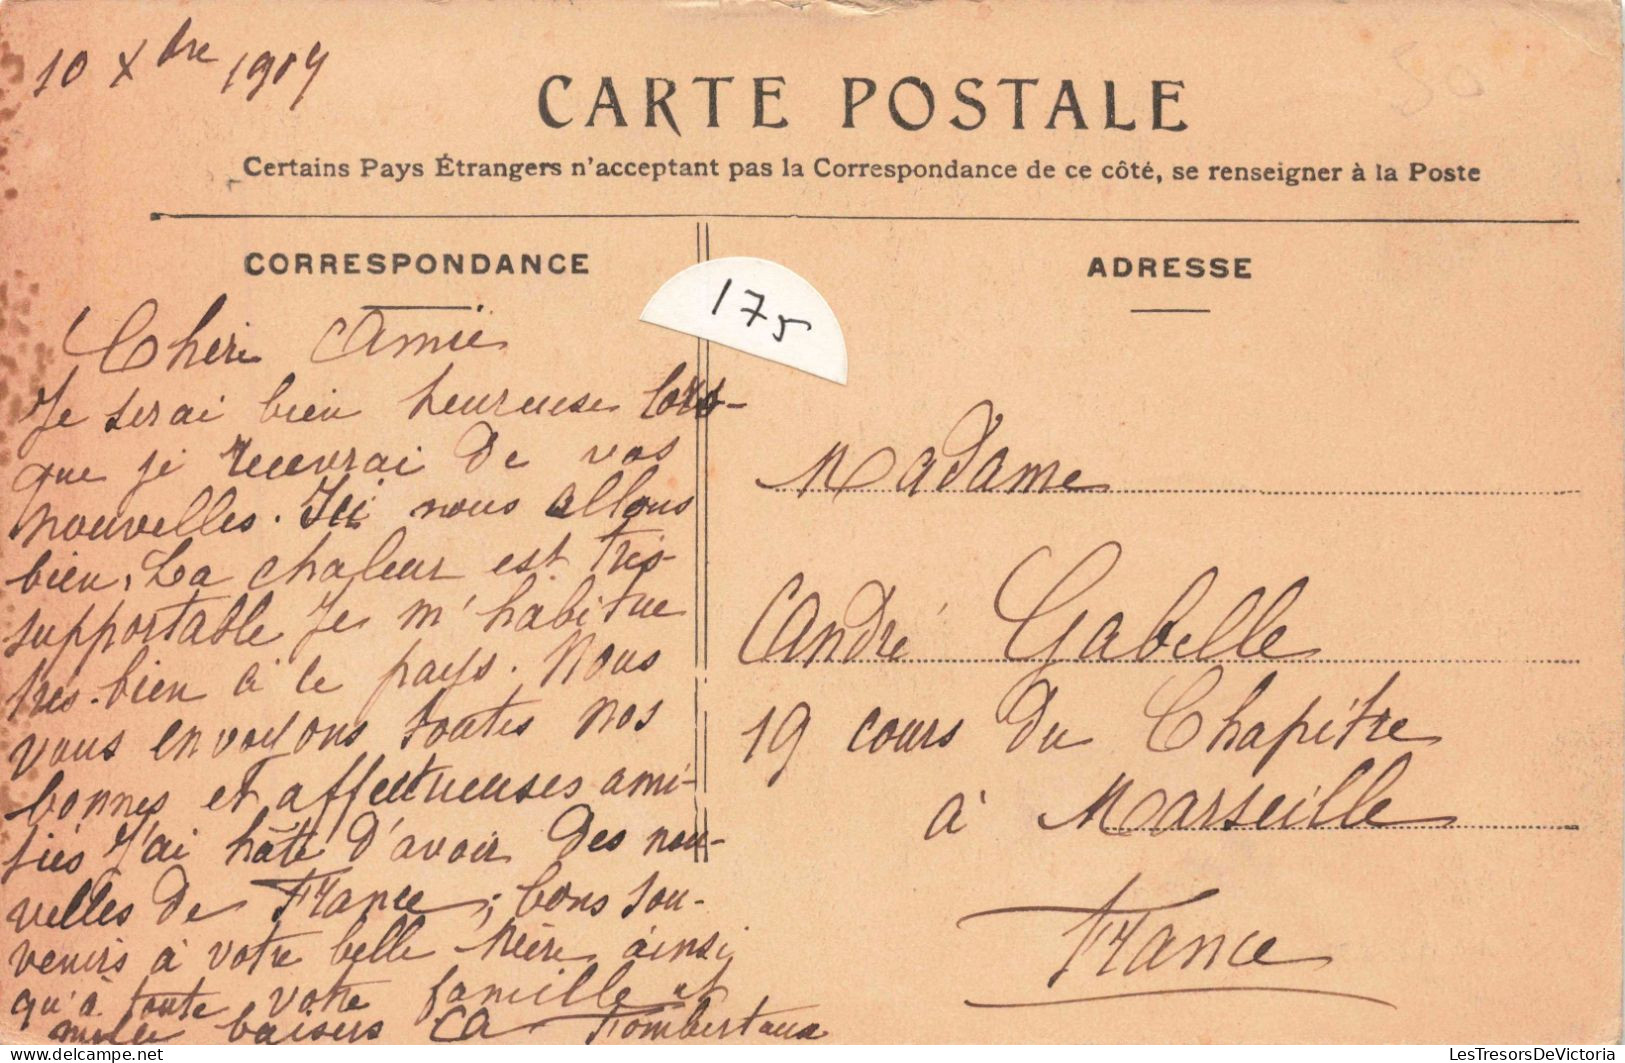 10 Xbre 1907
CARTE POSTALE
Certains Pays Étrangers n'acceptant pas la Correspondance de ce côté, se renseigner à la Poste
CORRESPONDANCE
Chère Amie
Je serai bien heureuse lors-
que je recevrai de vos
nouvelles. Ici nous allons
bien, La chaleur est très
supportable Je m'habitue
très-bien à ce pays. Nous
vous envoyons toutes nos
bonnes et affectueuses ami-
tiés J'ai hâte d'avoir des nou-
velles de France; bons sou-
venirs à votre belle mère ainsi
qu'à toute votre famille et
mille baisers
175
ADRESSE
Madame
André Gabelle
19 cours du Chapitre
à Marseille
France
LesTresorsDeVictoria